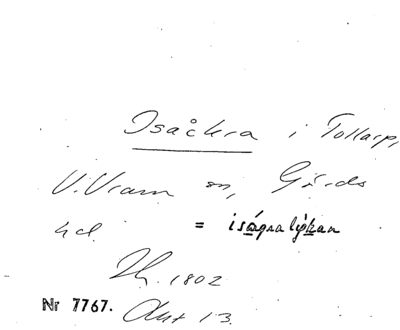 Isåckra i Tollarp,
V. Vram sn, Gärds
hd. = iságralýkan
Th. 1802
Nr 7767. Akt 13.